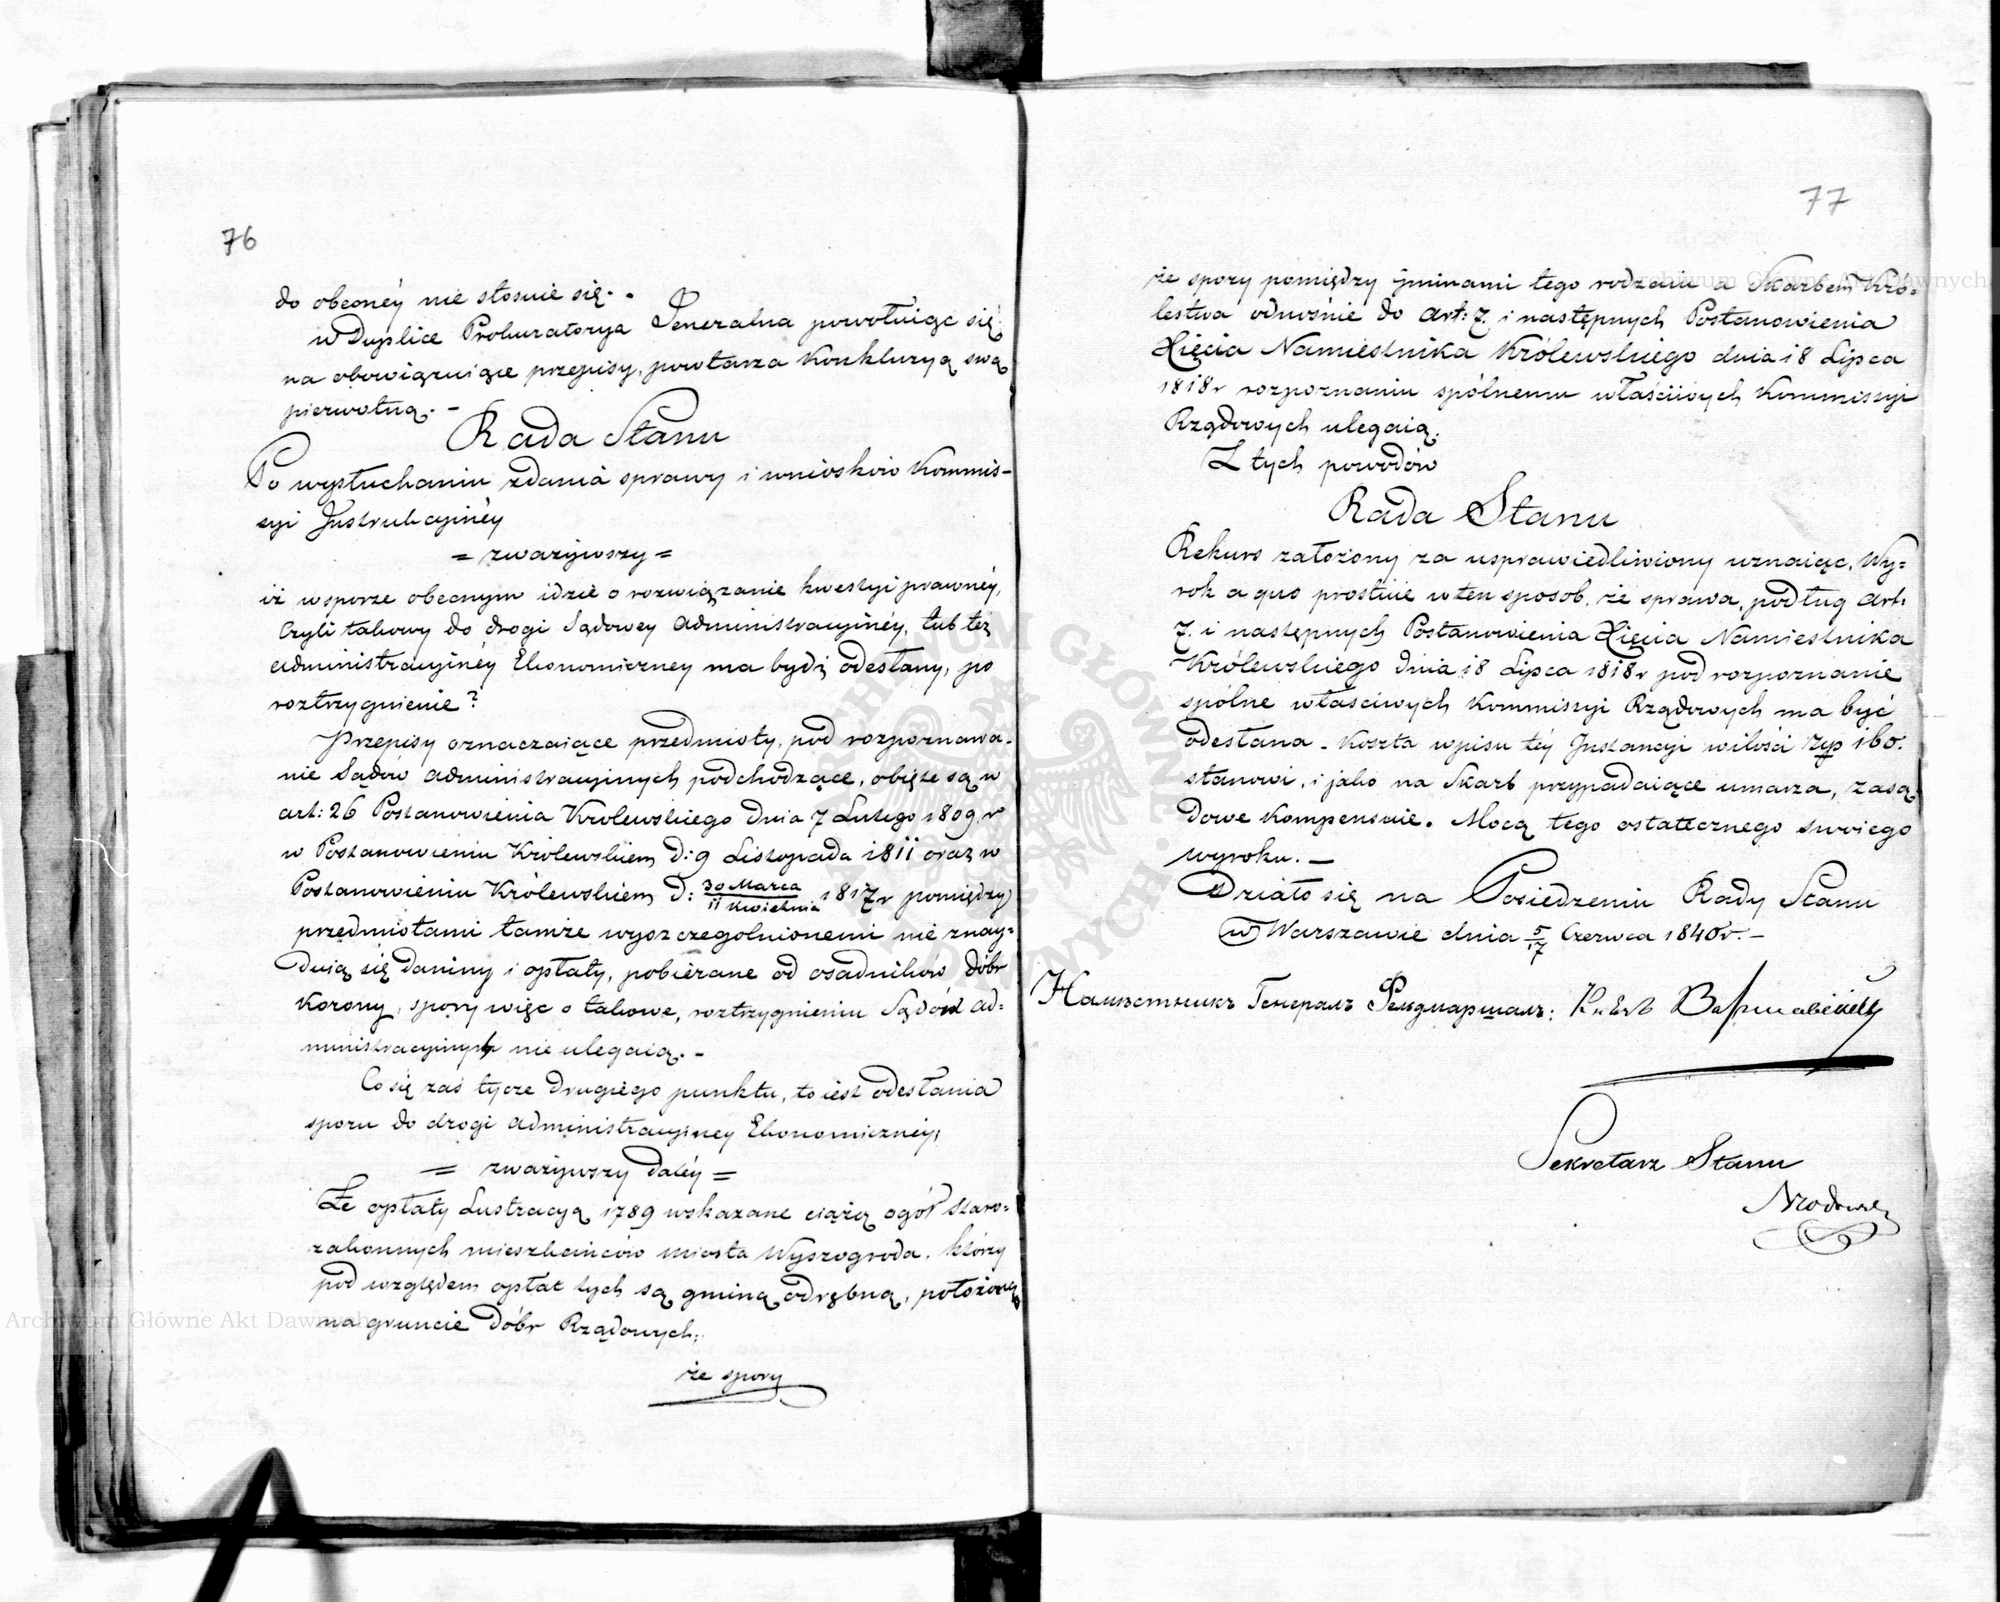 76
do obecnéy nie stosuie się.
w Duplice Prokuratorya Jeneralna powołuiąc się
na obowiązuiące przepisy, powtarza Konkluzyą swą
pierwotną. –
Rada Stanu
Po wysłuchaniu zdania sprawy i wniosków Kommis-
syi Instrukcyinéy
= zważywszy =
iż w sporze obecnym idzie o rozwiązanie kwestyi prawnéy,
Czyli takowy do drogi Sądowey administracyinéy, lub też
administracyinéy Ekonomiczney ma bydź odesłany, po
roztrzygnienie?
Przepisy oznaczaiące przedmioty, pod rozpoznawa-
nie Sądów administracyinych podchodzące, obięte są w
art: 26 Postanowienia Krolewskiego dnia 7 Lutego 1809 r
w Postanowieniu Królewskiem d: 9 Listopada 1811 oraz w
Postanowieniu Królewskiem d: 30 Marca / 11 Kwietnia 1817 r pomiędzy
przedmiotami tamże wyszczegolnionemi nie znay-
duią się daniny i opłaty, pobierane od osadników dóbr
Korony, spory więc o takowe, roztrzygnieniu Sądów ad-
ministracyinych nie ulegaią. –
Co się zaś tycze drugiego punktu, to iest odesłania
sporu do drogi administracyiney Ekonomicznéy,
= zważywszy daléy =
Że opłaty Lustracyą 1789 wskazane ciążą ogół Staro-
zakonnych mieszkańców miasta Wyszogroda, którzy
pod względem opłat tych są gminą odrębną, położoną
na gruncie dóbr Rządowych;
że spory
77
że spory pomiędzy gminami tego rodzaiu a Skarbem Kró-
lestwa odnośnie do art: 7. i następnych Postanowienia
Xięcia Namiestnika Królewskiego dnia 18 Lipca
1818 r rozpoznaniu spólnemu właściwych Kommissyi
Rządowych ulegaią.
Z tych powodów
Rada Stanu
Rekurs założony za usprawiedliwiony uznaiąc, Wy-
rok a quo prostuie w ten sposob, że sprawa, podług art:
7. i następnych Postanowienia Xięcia Namiestnika
Królewskiego dnia 18 Lipca 1818 r pod rozpoznanie
spólne właściwych Kommissyi Rządowych ma być
odesłana – Koszta wpisu téy Instancyi w ilości złp 160.
stanowi, i jako na Skarb przypadaiące umarza, zasą-
dowe kompensuie. Mocą tego ostatecznego swoiego
wyroku. –
Działo się na Posiedzeniu Rady Stanu
w Warszawie dnia 5/17 Czerwca 1840 r. –
Намѣстникъ Генералъ Фельдмаршалъ: Князь Варшавскій
Sekretarz Stanu
Archiwum Główne Akt Dawnych
Archiwum Główne Akt Dawnych